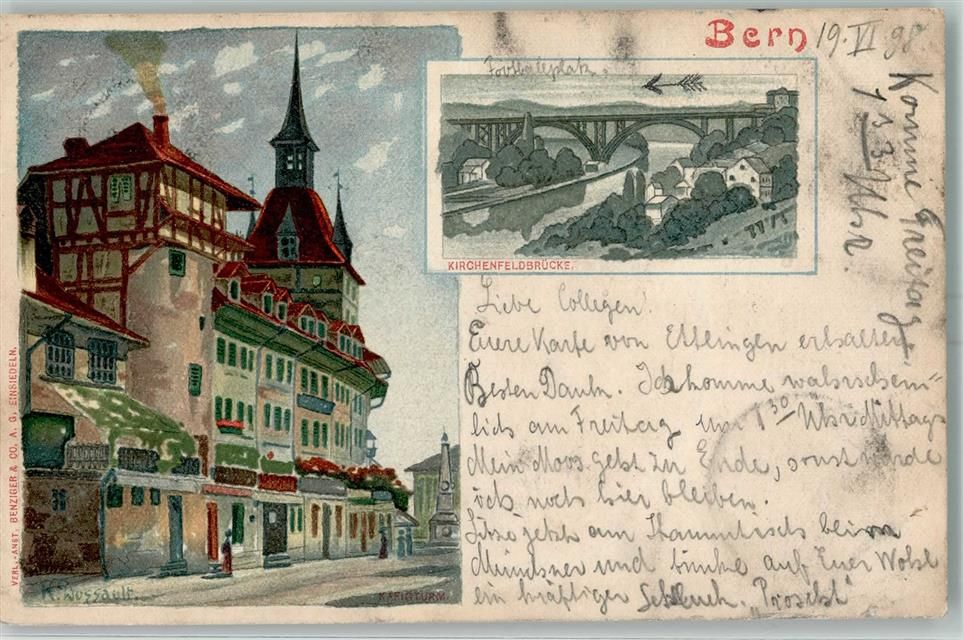 Bern 19. VI 98
Footballplatz.
KIRCHENFELDBRÜCKE.
Komme Freitag
1 30 Uhr.
Liebe Collegen!
Euere Karte von Ettlingen erhalten.
Besten Dank. Ich komme wahrschein-
lich am Freitag um 1 30 Uhr Mittags
Mein Moos geht zu Ende, sonst würde
ich noch hier bleiben.
Sitze jetzt am Stammtisch beim
Münchner und trinke auf Euer Wohl
ein kräftiger Schluck. "Prosit"
VERL.-ANST. BENZIGER & CO. A. G. EINSIEDELN.
KÄFIGTURM.